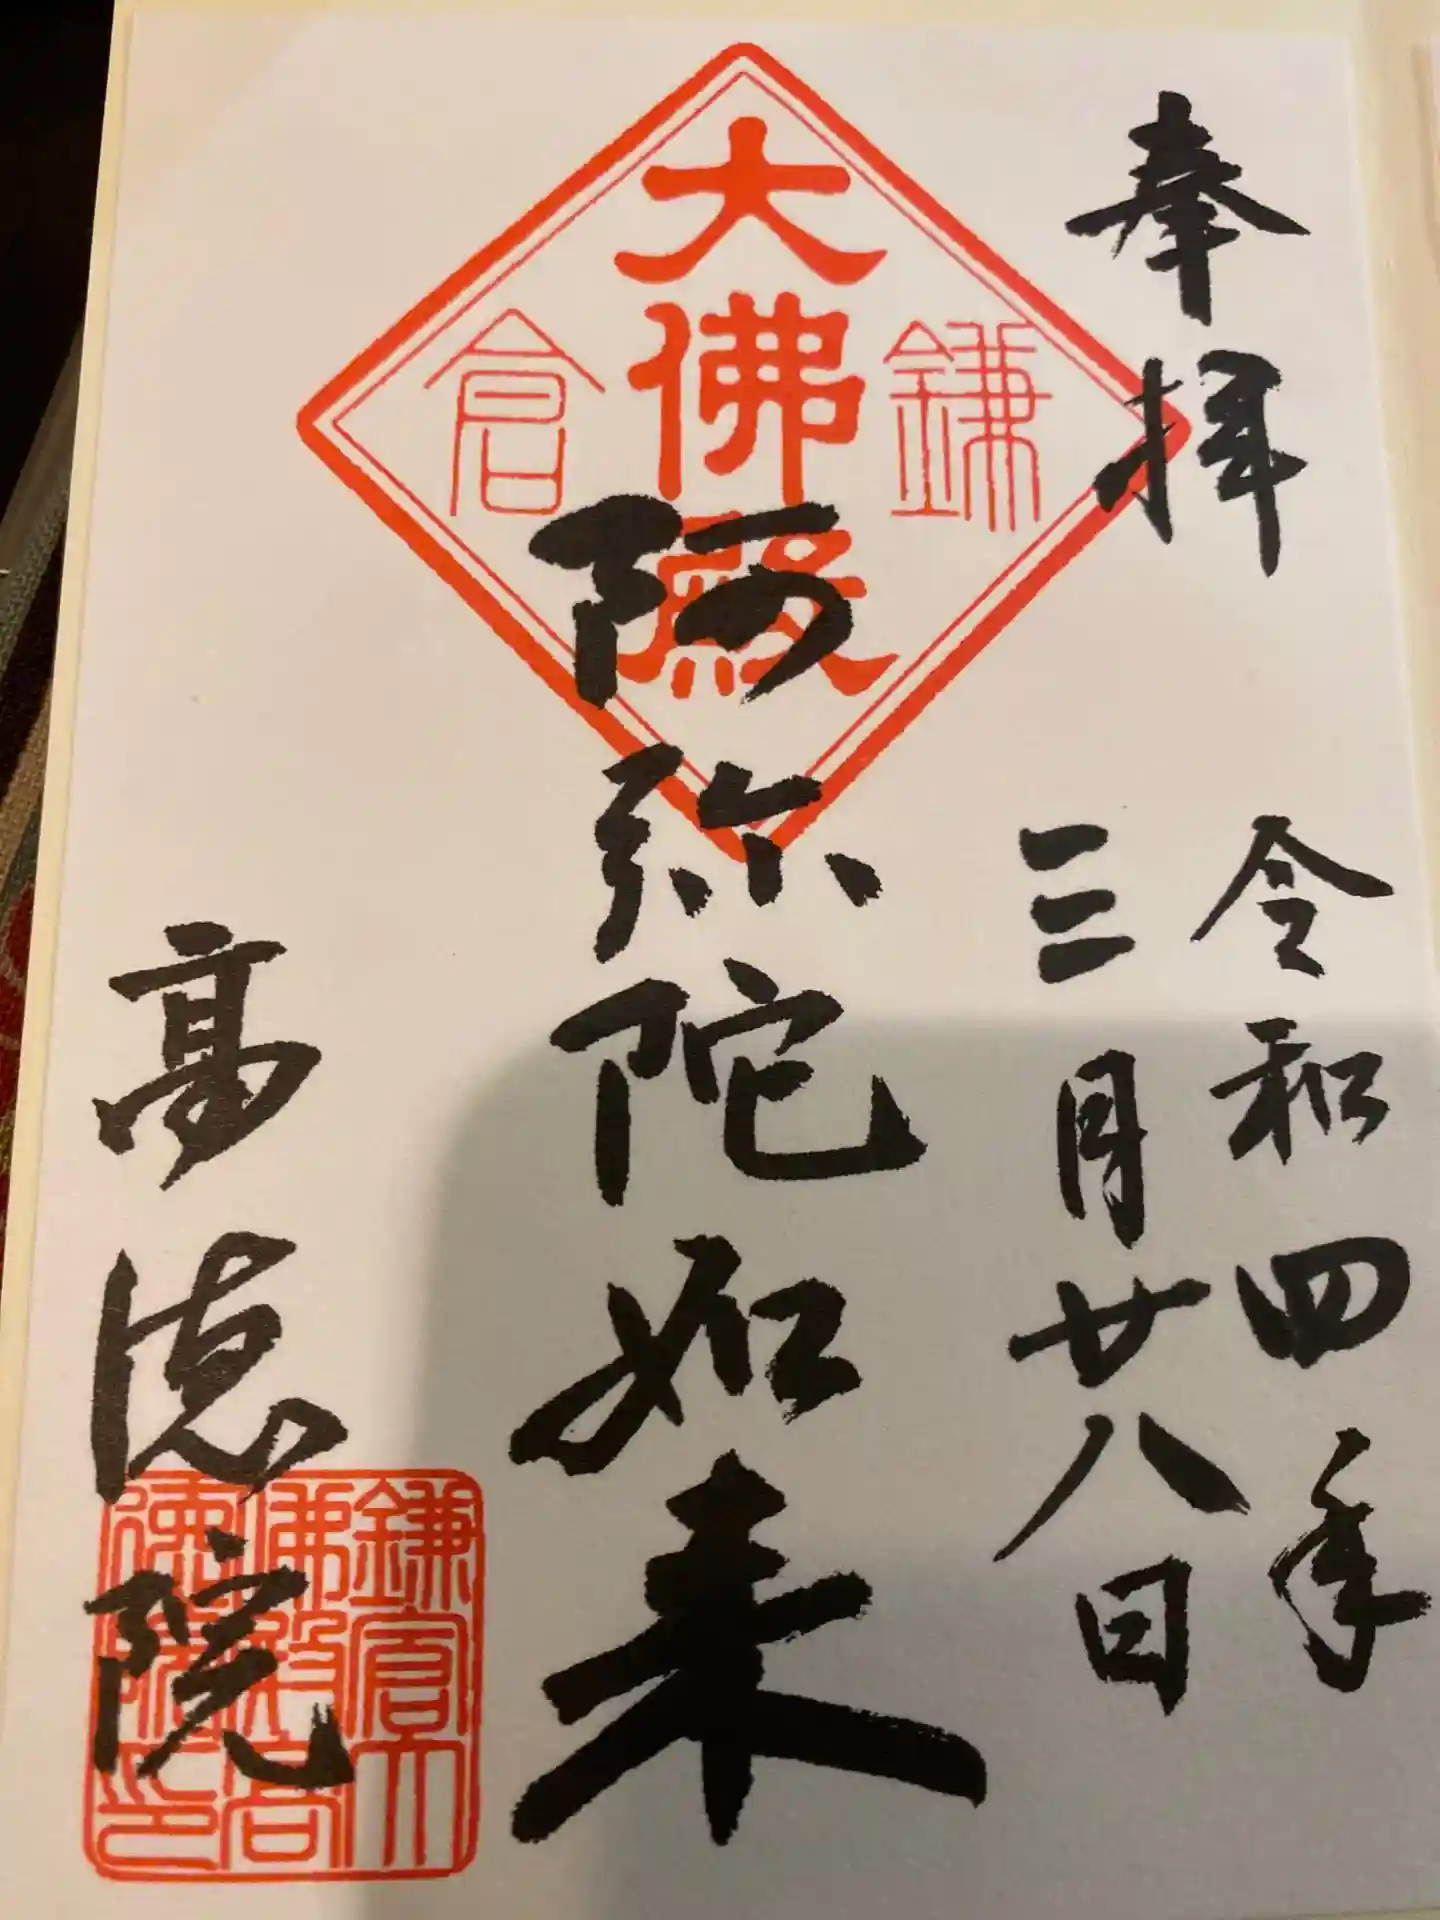 奉拝
令和四年
三月廿八日
鎌倉
大佛殿
阿弥陀如来
高徳院
鎌倉大
佛殿高
徳院印